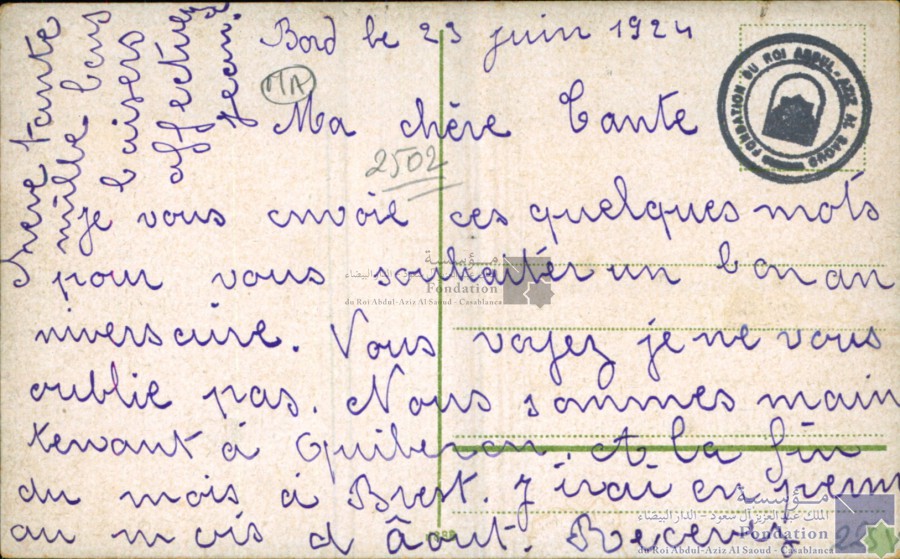 Bord le 23 juin 1924
MA
Ma chère Tante
2502
je vous envoie ces quelques mots
pour vous souhaiter un bon an
niversaire. Vous voyez je ne vous
oublie pas. Nous sommes main
tenant à Quiberon. et la fin
du mois à Brest. J'irai en perm
au mois d Âout. Recevez
chère tante
mille bons
baisers
affectueux
Jean.
FONDATION DU ROI ABDUL-AZIZ AL SAOUD
مؤسسة
الملك عبد العزيز آل سعود - الدار البيضاء
Fondation
du Roi Abdul-Aziz Al Saoud - Casablanca
مؤسسة
الملك عبد العزيز آل سعود - الدار البيضاء
Fondation
du Roi Abdul-Aziz Al Saoud - Casablanca